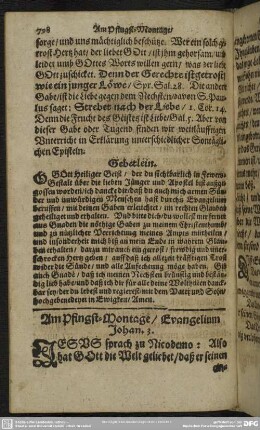 798 Am Pfingst-Montage/
sorge/ und uns mächtiglich beschütze. Wer ein solch
trost Hertz hat/ der liebet GOtt/ ist ihm gehorsam/ und
leidet umb GOttes Worts willen gern/ was der liebe
GOtt zuschicket. Denn der Gerechte ist getrost
wie ein junger Löwe/ Spr. Sal. 28. Die andere
Gabe/ ist die Liebe gegen dem Nechsten/ davon S. Pau-
lus saget: Strebet nach der Liebe/ 1. Cor. 14.
Denn die Frucht des Geistes ist Liebe/ Gal. 5. Aber von
dieser Gabe oder Tugend finden wir weitläufftigen
Unterricht in Erklärung unterschiedlicher Sonntägli-
chen Episteln.
Gebetlein.
O GOtt Heiliger Geist/ der du sichtbarlich in Fewers
Gestalt über die lieben Jünger und Apostel bist außge-
gossen worden/ ich dancke dir/ daß du auch mich armen Sün-
der und unwürdigen Menschen hast durch das Evangelium
beruffen/ mit deinen Gaben erleuchtet/ im rechten Glauben
geheiliget und erhalten. Und bitte dich/ du wollest mir ferner
aus Gnaden die nöthige Gaben zu meinem Christenthumb
und zu nützlicher Verrichtung meines Amptes mittheilen/
und insonderheit mich biß an mein Ende in wahrem Glau-
ben erhalten/ darzu mir auch ein getrost/ freudig und uner-
schrocken Hertz geben/ auff daß ich allezeit kräfftigen Trost
wider die Sünde/ und alle Anfechtung möge haben. Gib
auch Gnade/ daß ich meinen Nechsten brünstig und bestän-
dig lieb habe/ und daß ich dir für alle deine Wolthaten danck-
bar sey/ der du lebest und regierest mit dem Vater und Sohn/
hochgebenedeyet in Ewigkeit/ Amen.
Am Pfingst-Montage/ Evangelium
Johan. 3.
JESUS sprach zu Nicodemo: Also
hat GOtt die Welt geliebet/ daß er seinen